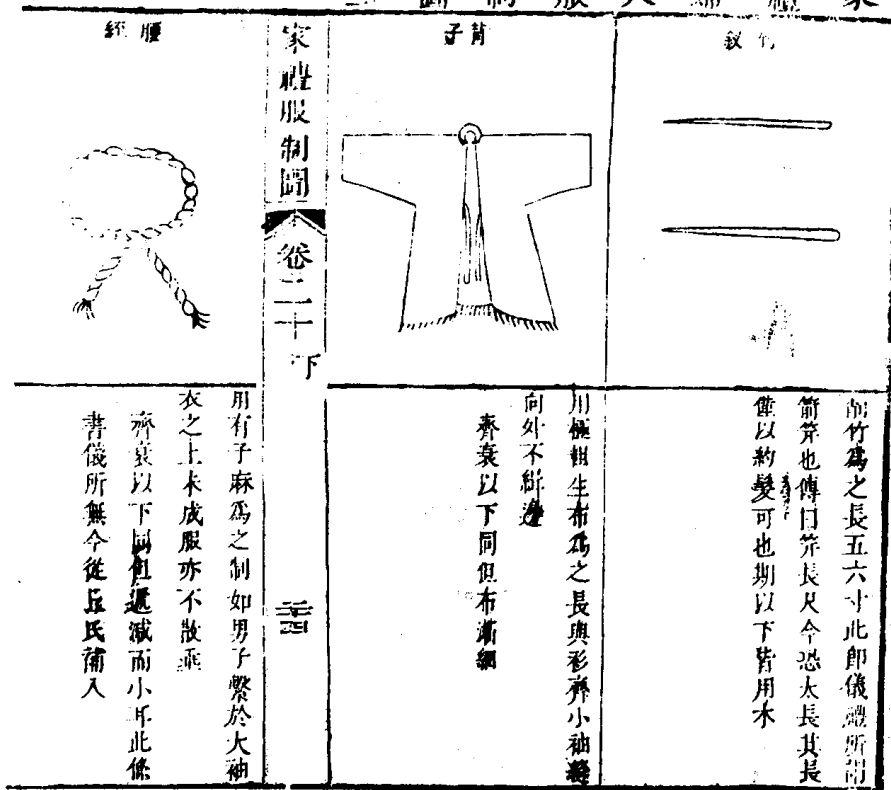 竹釵
削竹爲之長五六寸此卽儀禮所謂
箭笄也傳曰笄長尺今恐太長其長
僅以約髮可也期以下皆用木
背子
用極麄生布爲之長與衫齊小袖縫
向外不緝邊
齊衰以下同但布漸細
家禮服制圖
卷二十下
三十四
腰絰
用有子麻爲之制如男子繫於大袖
衣之上未成服亦不散垂
齊衰以下同但遞減而小耳此條
書儀所無今從丘氏補入